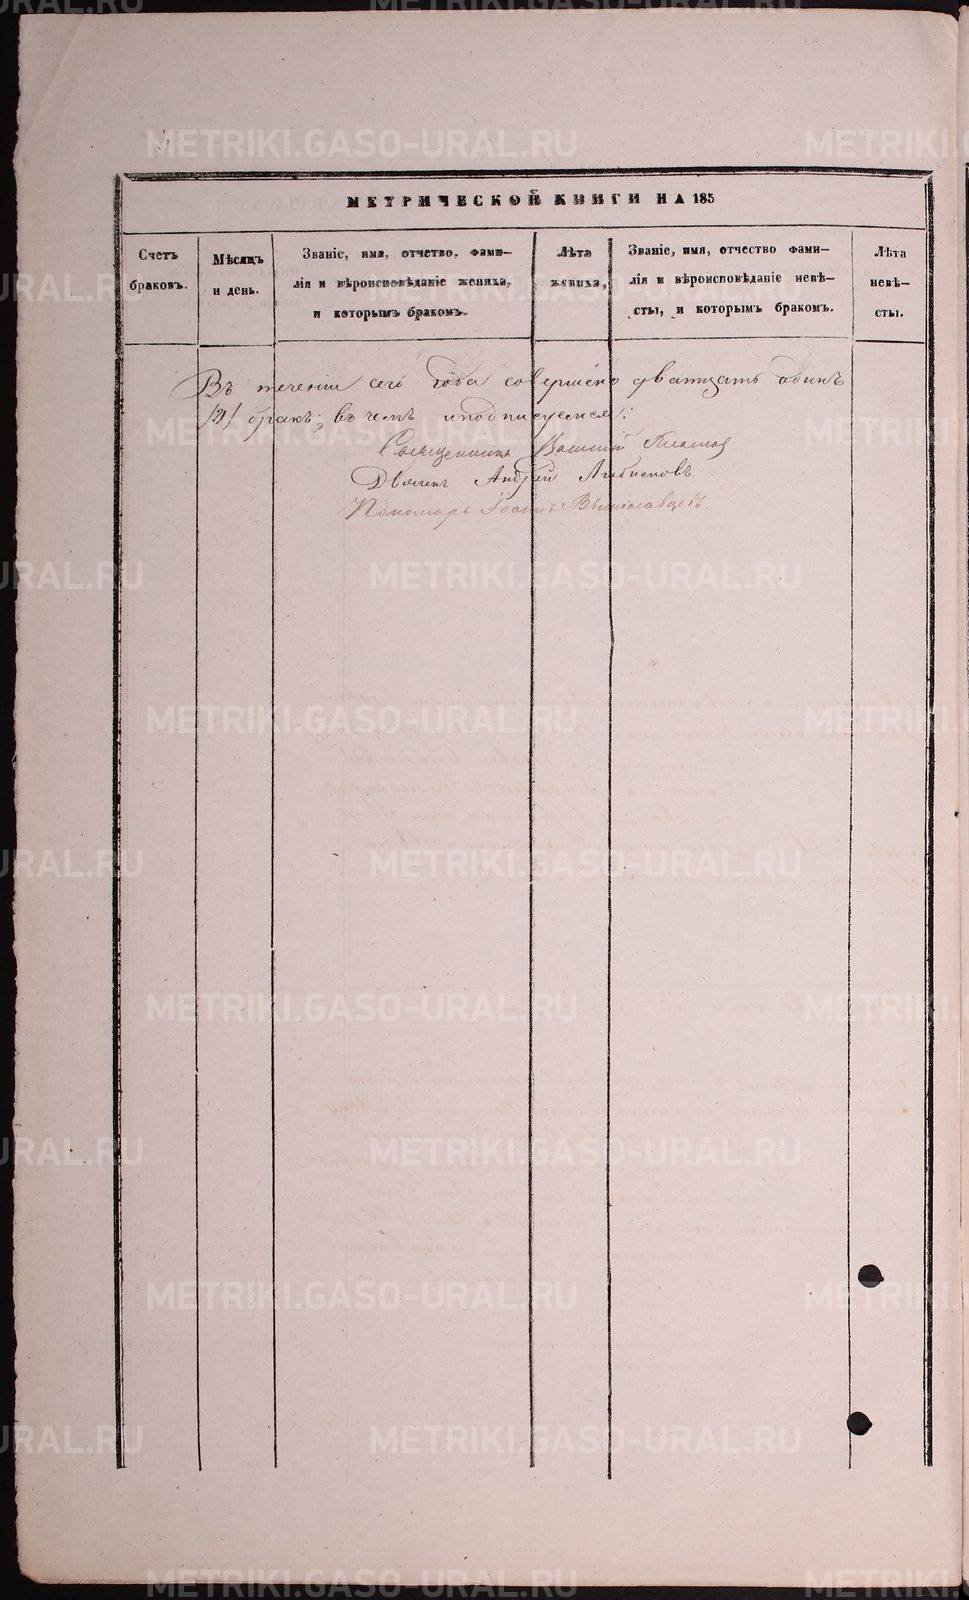 МЕТРИЧЕСКОЙ КНИГИ НА 185
Счетъ браковъ.
Мѣсяцъ и день.
Званіе, имя, отчество, фами-
лія и вѣроисповѣданіе жениха,
и которымъ бракомъ.
Лѣта жениха,
Званіе, имя, отчество фами-
лія и вѣроисповѣданіе невѣ-
сты, и которымъ бракомъ.
Лѣта невѣ-
сты.
Въ теченіи сего года совершено дватцать одинъ
/21/ бракъ; въ чемъ и подписуемся:
Священникъ Василий
Дьячекъ Андрей
Пономарь Іоаннъ
METRIKI.GASO-URAL.RU